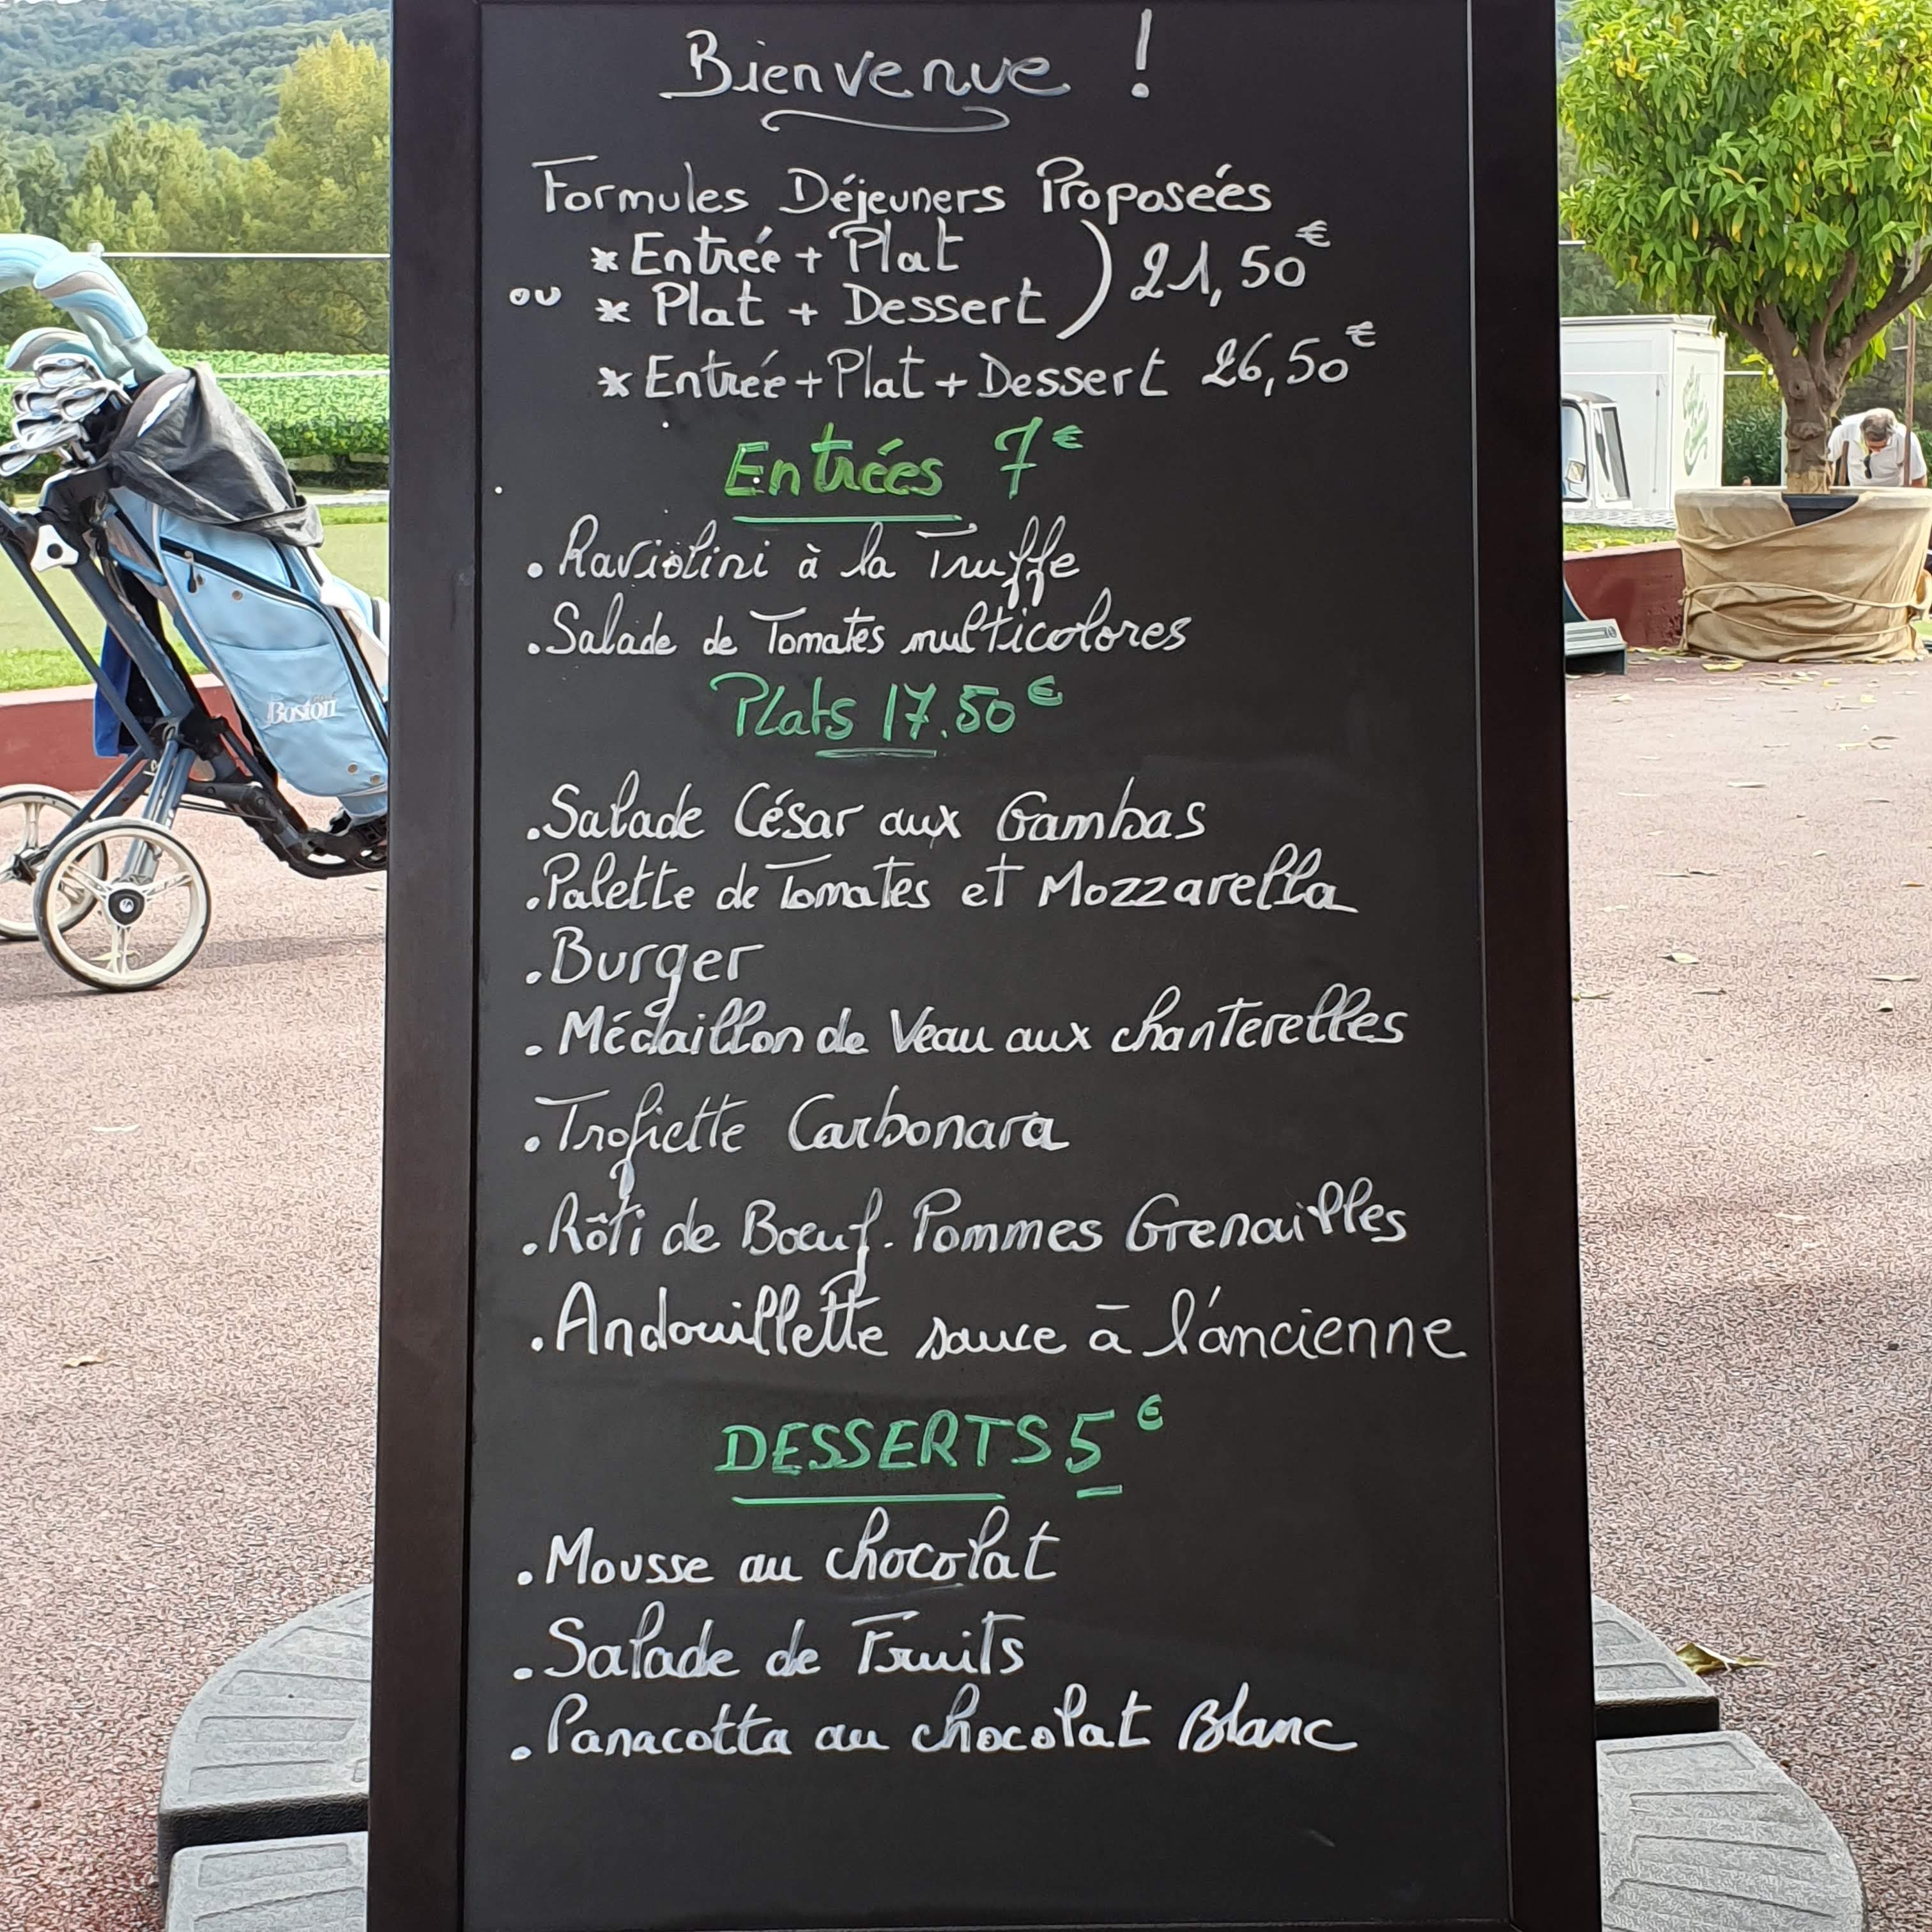 Bienvenue !
Formules Déjeuners Proposées
* Entrée + Plat
ou * Plat + Dessert ) 21,50€
* Entrée + Plat + Dessert 26,50€
Entrées 7€
. Raviolini à la Truffe
. Salade de Tomates multicolores
Plats 17.50€
. Salade César aux Gambas
. Palette de Tomates et Mozzarella
. Burger
. Médaillon de Veau aux chanterelles
. Trofiette Carbonara
. Rôti de Bœuf. Pommes Grenailles
. Andouillette sauce à l'ancienne
DESSERTS 5€
. Mousse au chocolat
. Salade de Fruits
. Panacotta au chocolat Blanc
Boston